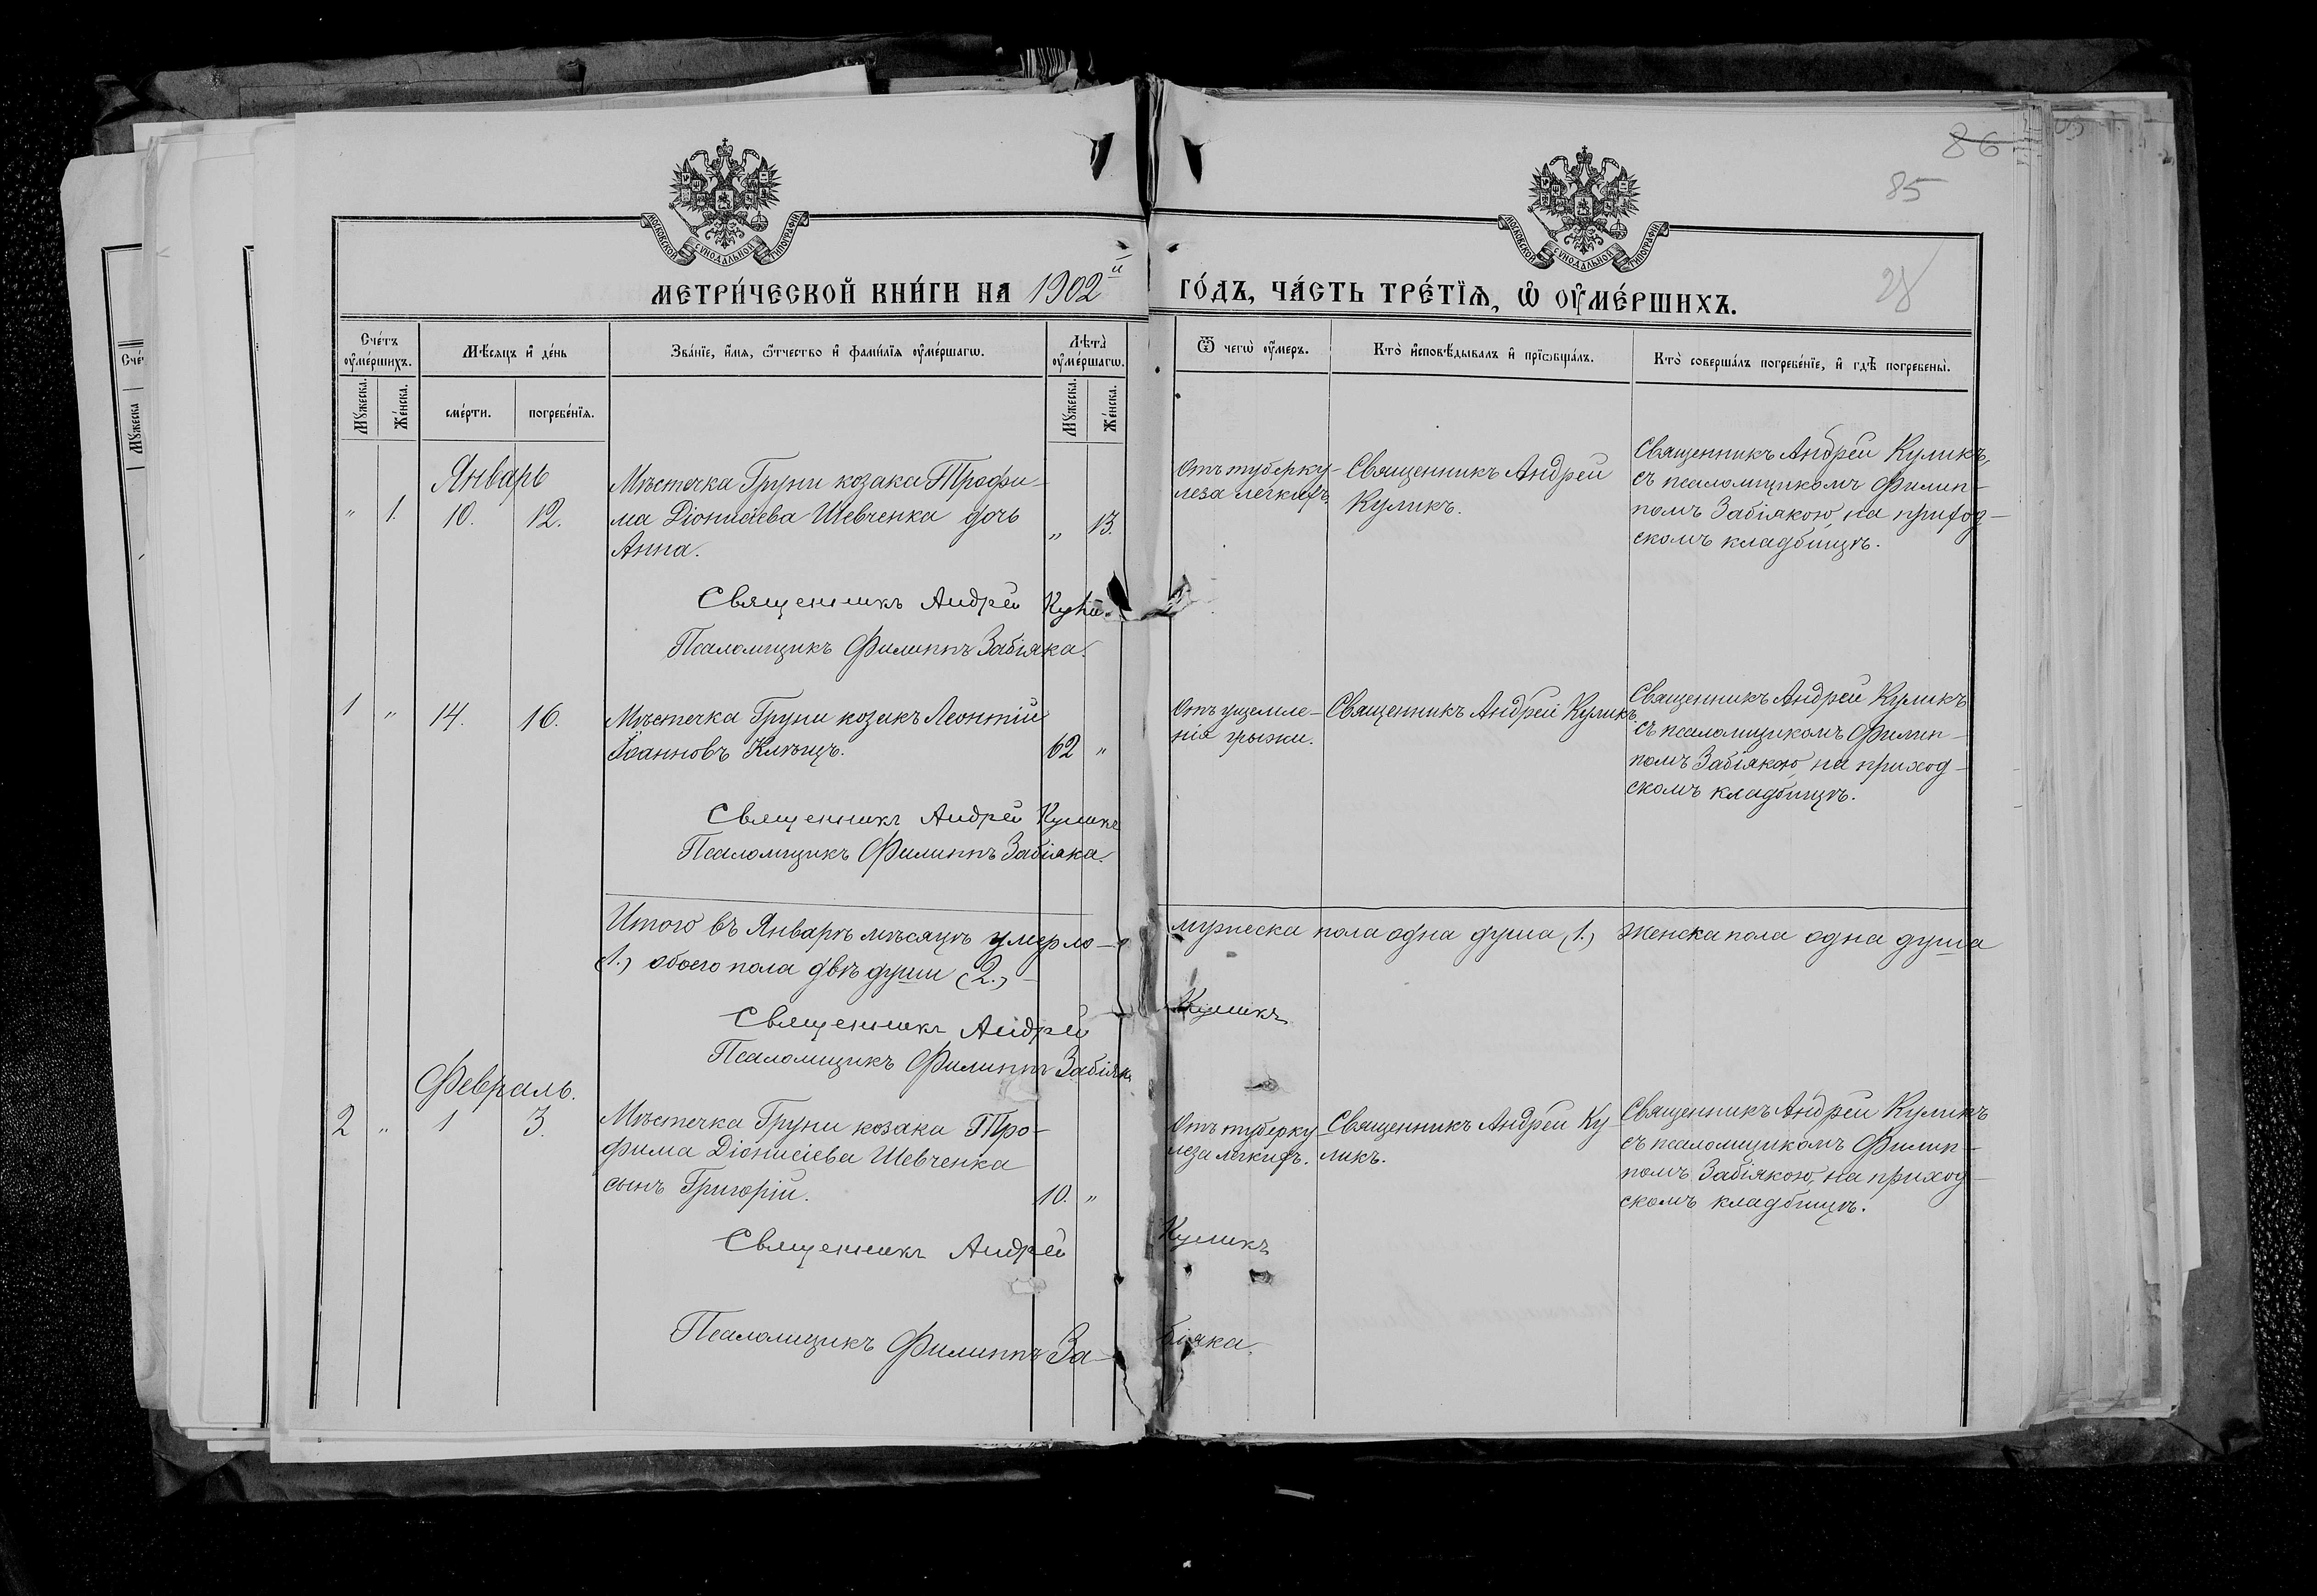 86
85
28
МОСКОВСКОЙ СѴНОДАЛЬНОЙ ТИПОГРАФІИ
МОСКОВСКОЙ СѴНОДАЛЬНОЙ ТИПОГРАФІИ
МЕТРИ́ЧЕСКОЙ КНИ́ГИ НА 1902й
ГО́ДЪ, ЧА́СТЬ ТРЕ́ТЇѦ, Ѡ҆ ОУ҆МЕ́РШИХЪ.
Сче́тъ оу҆ме́ршихъ.
Мѣ́сяцъ и҆ де́нь
Зва́нїе, и҆́мѧ, ѻ҆́тчество и҆ фами́лїѧ оу҆ме́ршагѡ.
Лѣта̀ оу҆ме́ршагѡ.
Мꙋ́жеска.
Же́нска.
сме́рти.
погребе́нїѧ.
Мꙋ́жеска.
Же́нска.
Ѿ чегѡ̀ оу҆́меръ.
Кто̀ и҆сповѣ́дывалъ и҆ прїѡбща́лъ.
Кто̀ соверша́лъ погребе́нїе, и҆ гдѣ̀ погребены̀.
Январь
" 1. 10. 12.
Мѣстечка Груни козака Трофи-
ма Діонисіева Шевченка дочь
Анна.
" 13.
Отъ туберку-
леза легкихъ
Священникъ Андрей
Куликъ.
Священникъ Андрей Куликъ,
съ псаломщикомъ Филип-
помъ Забіякою, на приход-
скомъ кладбищѣ.
Священникъ Андрей
Псаломщикъ Филиппъ Забіяка.
1 " 14. 16.
Мѣстечка Груни козакъ Леонтій
Іоанновъ
62 "
Отъ ущемле-
нія грыжи.
Священникъ Андрей Куликъ.
Священникъ Андрей Куликъ
съ псаломщикомъ Филип-
помъ Забіякою, на приход-
скомъ кладбищѣ.
Священникъ Андрей Куликъ
Псаломщикъ Филиппъ Забіяка.
Итого въ Январѣ мѣсяцѣ умерло- мужеска пола одна душа (1.) женска пола одна душа
(1.) обоего пола двѣ души (2.)-
Священникъ Андрей Куликъ
Псаломщикъ Филиппъ Забіяка
Февраль.
2 " 1 3.
Мѣстечка Груни козака Тро-
фима Діонисіева Шевченка
сынъ Григорій.
10. "
Отъ туберку-
леза легкихъ.
Священникъ Андрей Ку-
ликъ.
Священникъ Андрей Куликъ
съ псаломщикомъ Филип-
помъ Забіякою, на приход-
скомъ кладбищѣ.
Священникъ Андрей Куликъ
Псаломщикъ Филиппъ За-біяка.